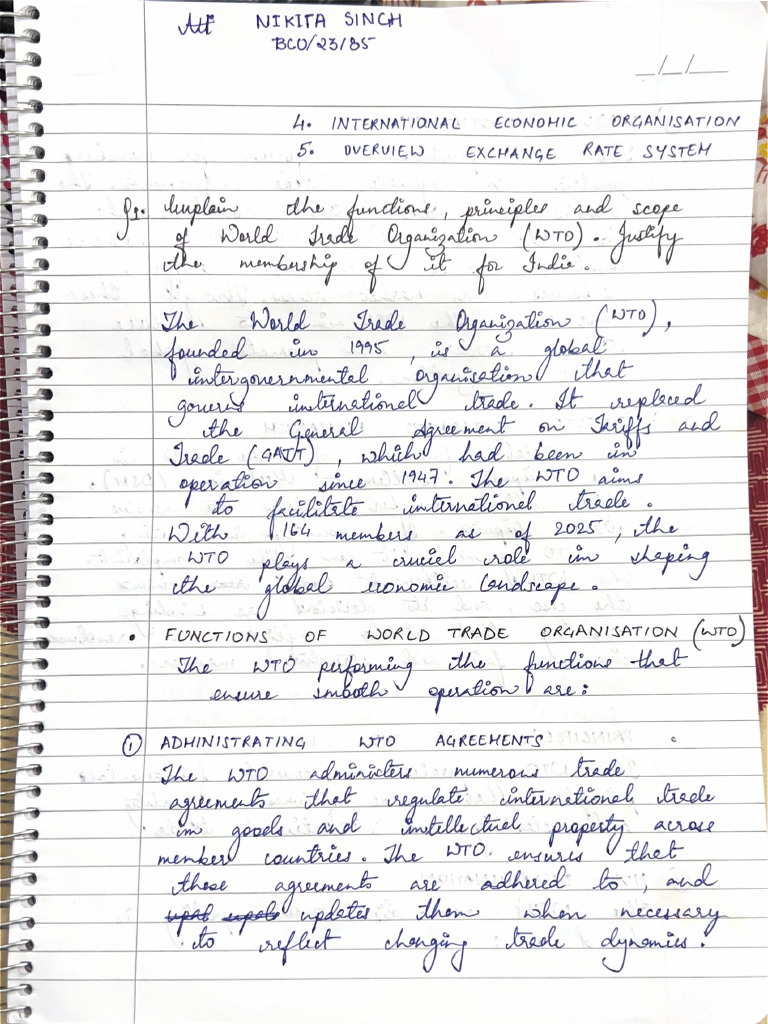 NIKITA SINGH
BCO/23/85
_/_/_
4. INTERNATIONAL ECONOMIC ORGANISATION
5. OVERVIEW EXCHANGE RATE SYSTEM
Q1. Explain the functions, principles and scope
of World Trade Organization (WTO). Justify
the membership of it for India.
The World Trade Organization (WTO),
founded in 1995, is a global
intergovernmental organisation that
governs international trade. It replaced
the General Agreement on Tariffs and
Trade (GATT), which had been in
operation since 1947. The WTO aims
to facilitate international trade.
With 164 members as of 2025, the
WTO plays a crucial role in shaping
the global economic landscape.
• FUNCTIONS OF WORLD TRADE ORGANISATION (WTO)
The WTO performing the functions that
ensure smooth operation are:
① ADMINISTRATING WTO AGREEMENTS
The WTO administers numerous trade
agreements that regulate international trade
in goods and intellectual property across
member countries. The WTO ensures that
these agreements are adhered to, and
updates them when necessary
to reflect changing trade dynamics.